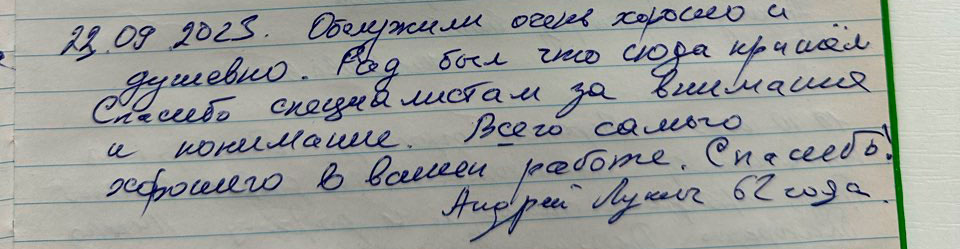 22.09 2023. Обслужили очень хорошо и
душевно. Рад был что сюда пришёл
Спасибо специалистам за внимание
и понимание. Всего самого
хорошего в вашей работе. Спасибо!
Андрей Лукич 62 года.